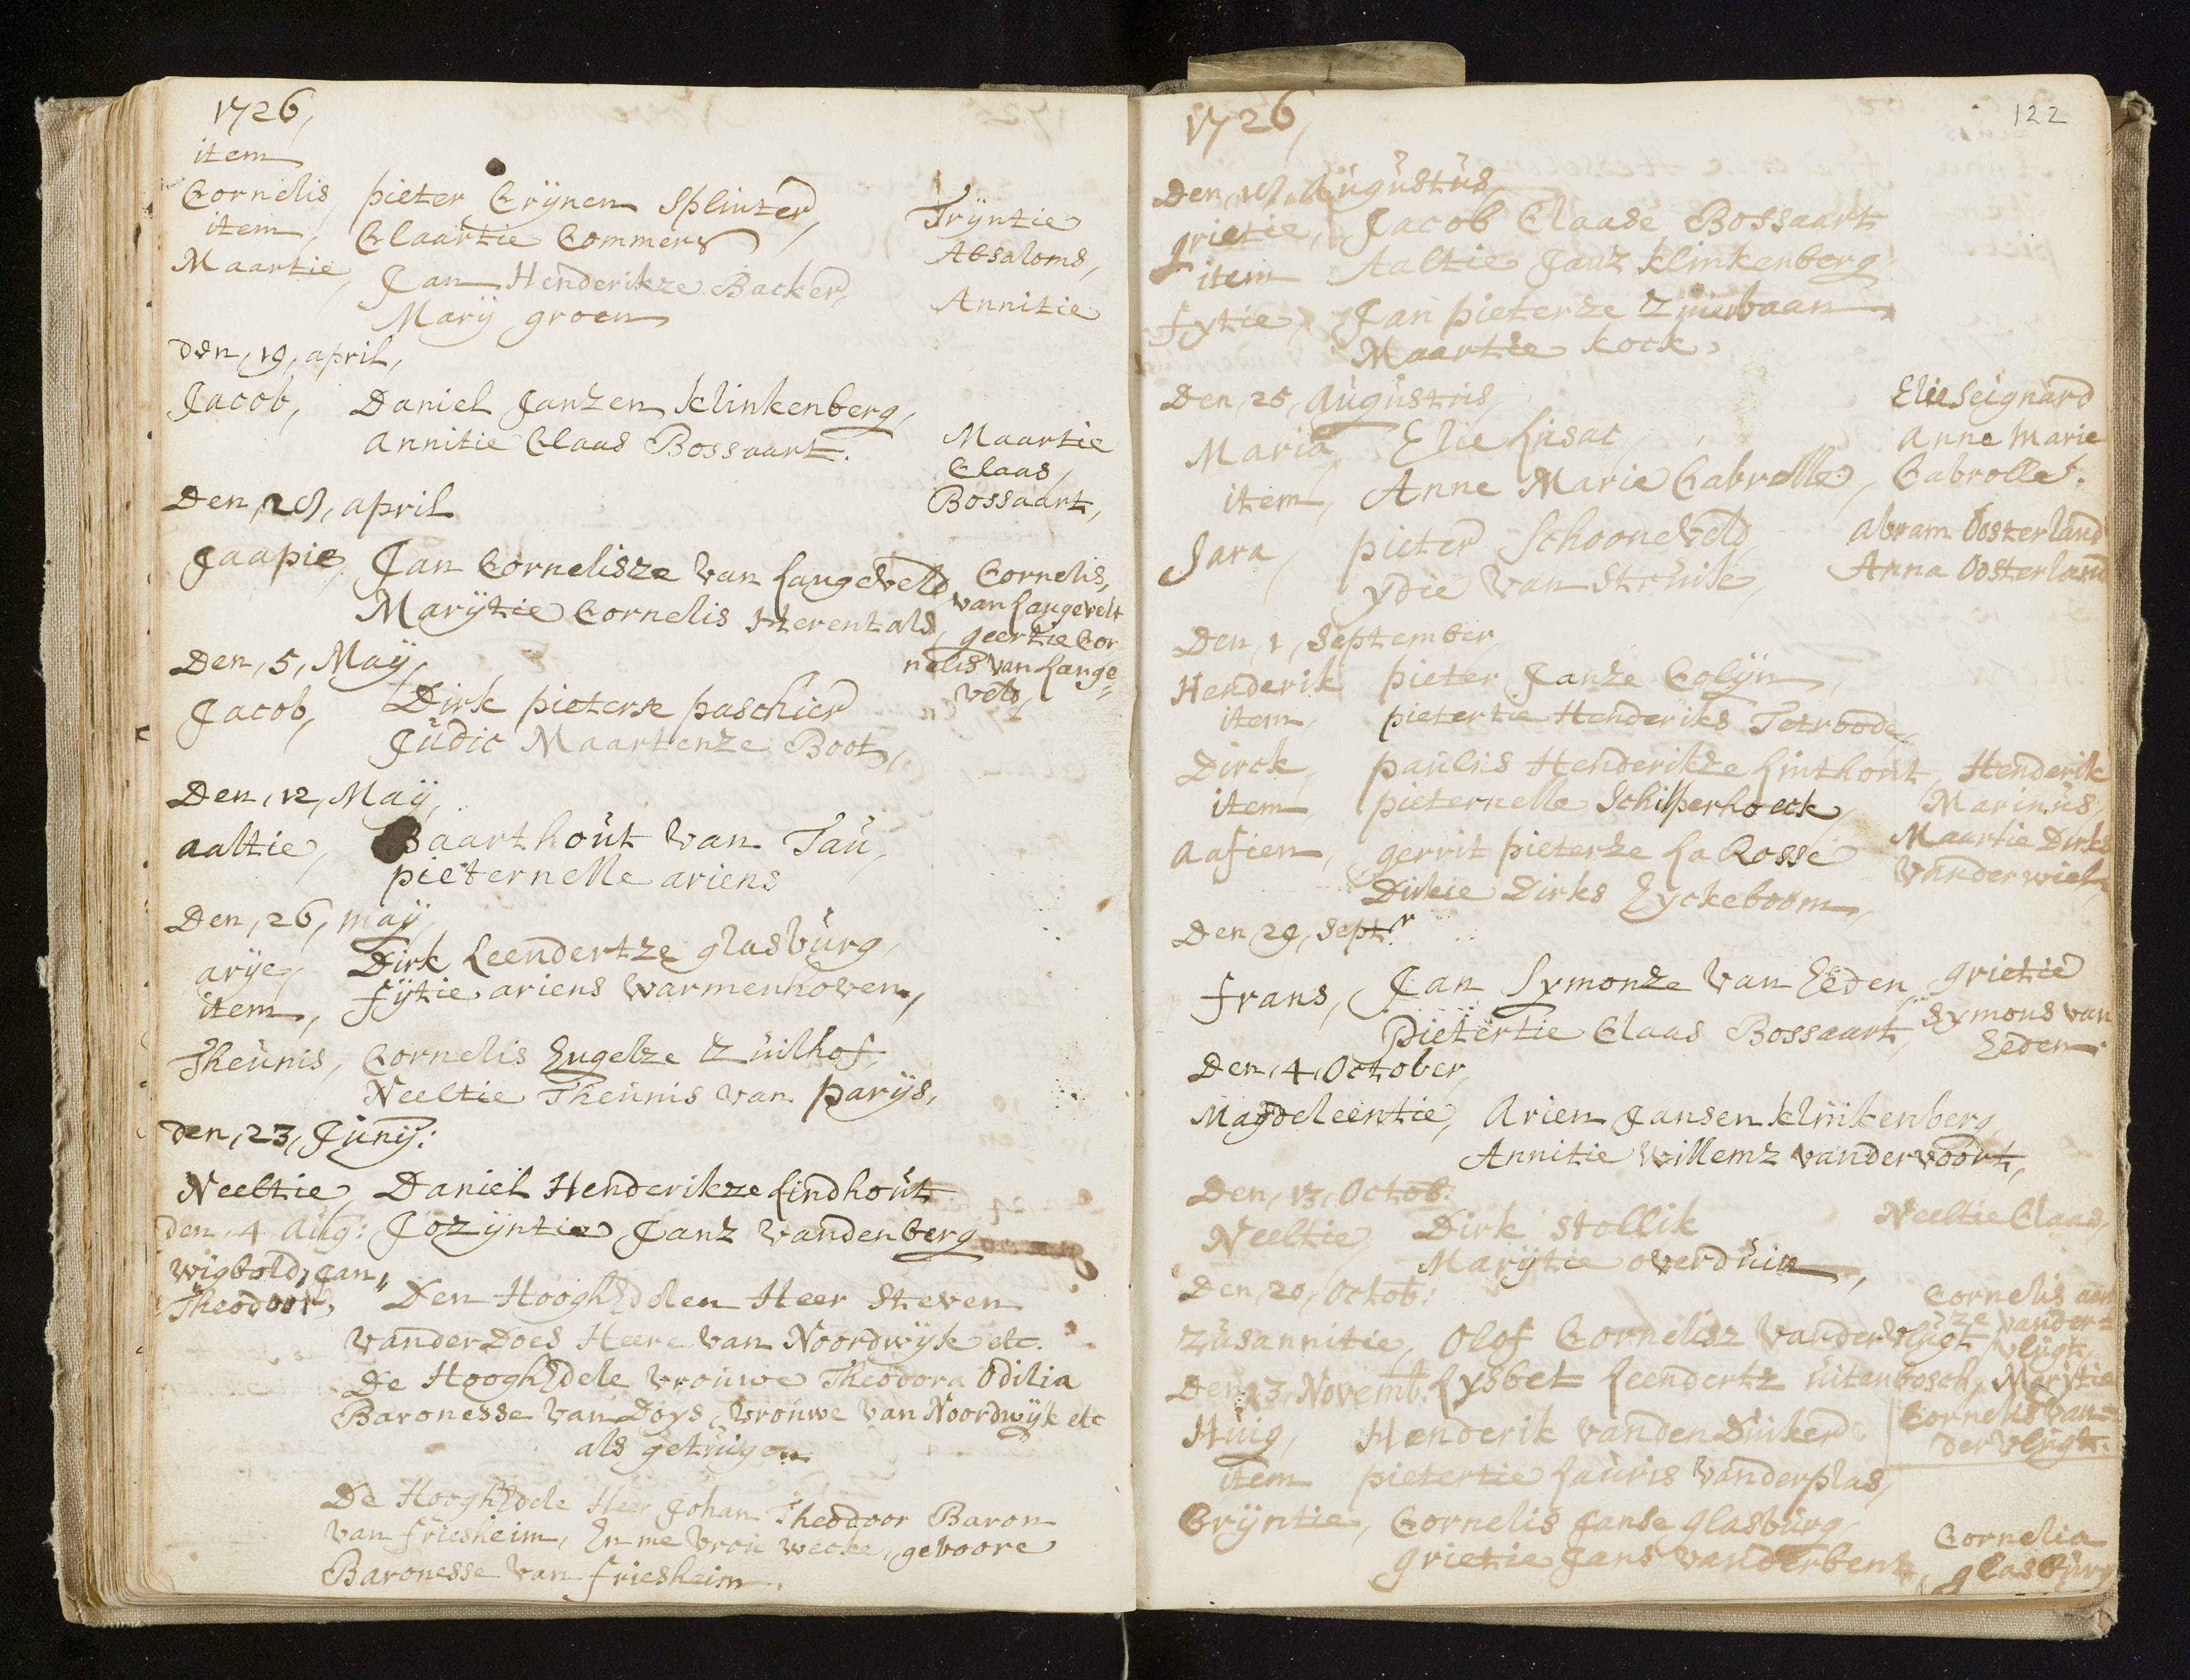 1726,
item
Cornelis, pieter Crÿnen Splinter, Trÿntie
item, Claartie Commers, Absaloms,
Maartie, Jan Henderikze Backer, Annitie
Marÿ groen
den, 19, april,
Jacob, Daniel Janzen Klinkenberg,
Annitie Claas Bossaart. Maartie
Claas,
Bossaart,
Den, 28, april
Jaapie, Jan Cornelisze van Langeveld, Cornelis,
Marÿtie Cornelis Herentals, van Langevelt
geertie Cor
nelis van Lange=
veld,
Den, 5, Maÿ,
Jacob, Dirk pieterse paschier
Judic Maartenze Boot,
Den, 12, Maÿ,
aaltie, Baarthout van Tau,
pieternelle ariens
Den, 26, maÿ,
arÿe, Dirk Leendertze glasburg,
item, fÿtie ariens Warmenhoven,
Theunis, Cornelis Engelze Zuilhof,
Neeltie Theunis van parÿs,
den, 23, Junÿ:
Neeltie, Daniel Henderikze Lindhout
den 4 Aug: Jozÿntie Janz vandenberg
Wigbold, Jan,
Theodoor, Den HooghEdelen Heer Steven
vander Does Heere van Noordwÿk etc.
De HooghEdele Vrouwe Theodora Odilia
Baronesse van Doys, Vrouwe van Noordwÿk etc
als getuigen
De HooghEdele Heer Johan Theodoor Baron
van friesheim, En me Vrou wecke, geboore
Baronesse van friesheim.
122
1726,
Den, 18, Augustus,
grietie, Jacob Claase Bossaart
item Aaltie Janz Klinkenberg
fytie, Jan pieterze Zuirbaan
Maartie Kock,
Den, 25, Augustus,
Maria, Elie Lusac, Elie Seignard
item, Anne Marie Cabrolle, Anne Marie
Cabrolle.
Sara, pieter Schooneveld, Abram Oosterland
ydie van Struik, Anna Oosterland
Den, 1, September,
Henderik, pieter Janze Colÿn,
item, pietertie Henderiks Tetrode,
Dirck, paulus Henderikze Linthout, Henderik
item, pieternelle Schilperhoeck, Marinus,
Aafien, gerrit pieterze La Rosse Maartie Dirks
Dirkie Dirks Eyckeboom, vander wiel,
Den, 29, Sept.r
frans, Jan Symonze van Eeden, grietie
pietertie Claas Bossaart, Symons van
Eeden.
Den, 4, October,
Magdeleentie, Arien Jansen Klinkenberg,
Annitie Willemz vandervoort,
Den, 13, Octob:
Neeltie, Dirk Stollik Neeltie Claas,
Marÿtie overduin,
Den, 20, Octob: Cornelis aart
Zusannitie, Olof Cornelisz vandervlugt, ze vander=
vlugt,
Lysbet Leendertz uitenbosch, Marÿtie
Den, 23, Novemb: Cornelis van=
der vlugt.
Huig, Henderik vanden Duiker
item pietertie Lauris vanderplas,
Crÿntie, Cornelis Janse glasburg, Cornelia
grietie Jans vanderbent, glasburg